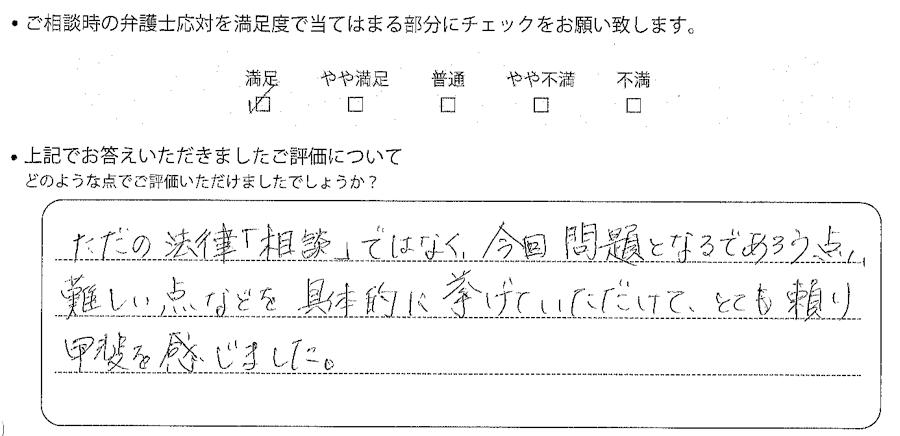 ・ご相談時の弁護士応対を満足度で当てはまる部分にチェックをお願い致します。
満足 やや満足 普通 やや不満 不満
☑ □ □ □ □
・上記でお答えいただきましたご評価について
どのような点でご評価いただけましたでしょうか？
ただの法律「相談」ではなく、今回問題となるであろう点、
難しい点などを具体的に挙げていただけて、とても頼り
甲斐を感じました。